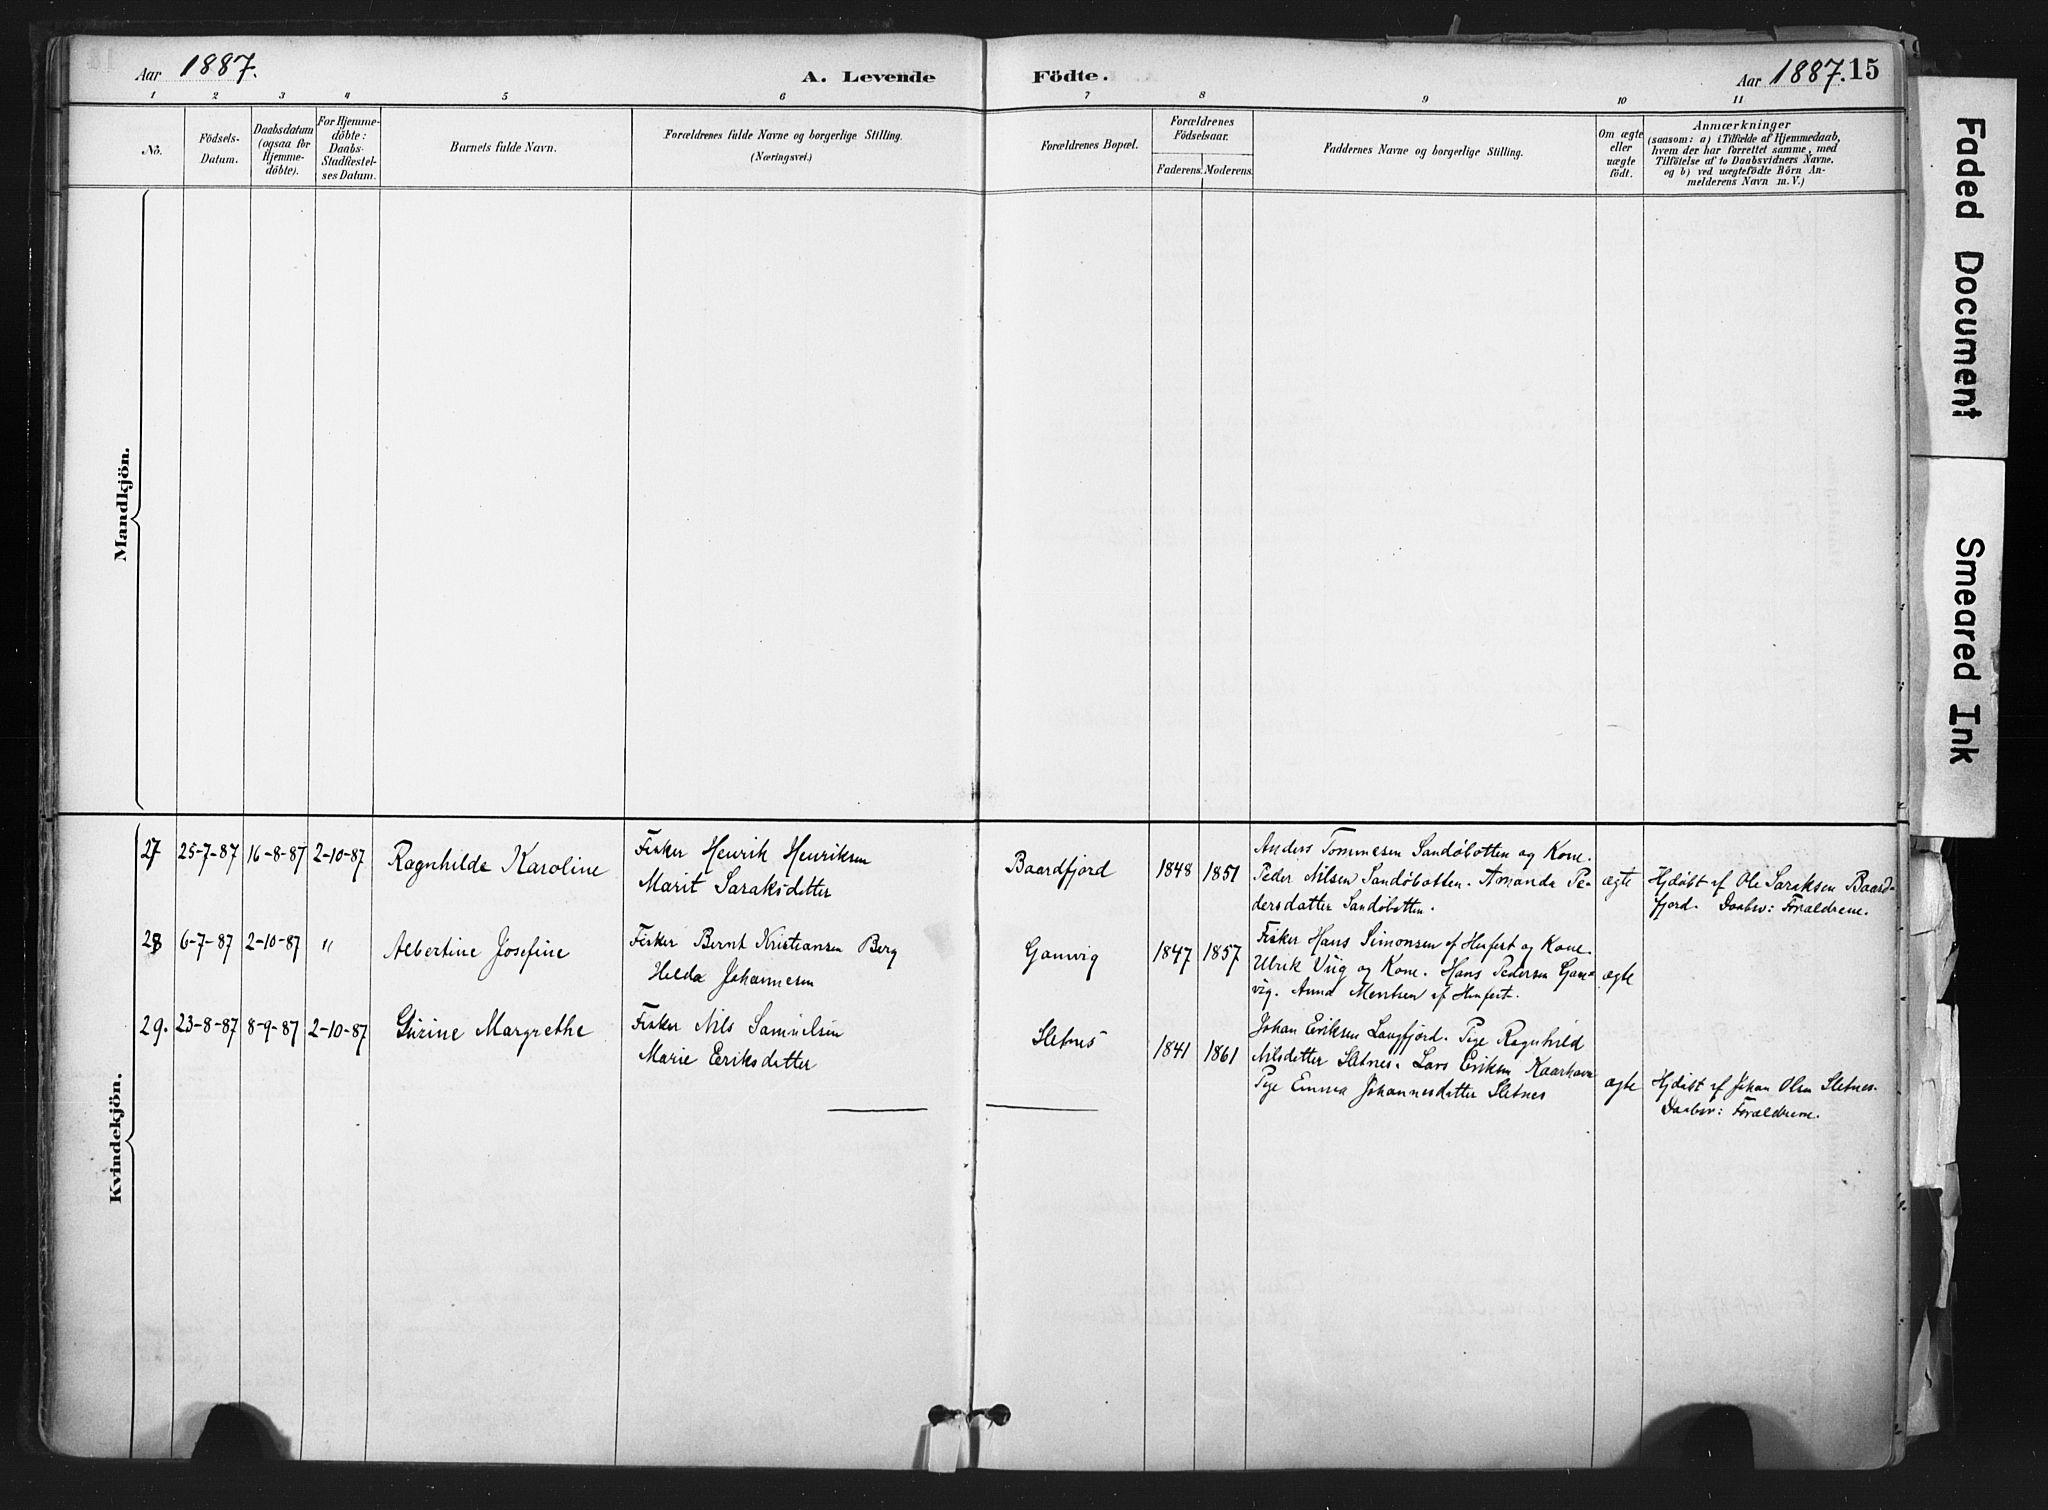 Aar 1887.
A. Levende Födte.
Aar 1887. 15
1 2 3 4 5 6 7 8 9 10 11
No.
Födsels-
Datum.
Daabsdatum
(ogsaa for
Hjemme-
döbte).
For Hjemme-
döbte:
Daabs-
Stadfæstel-
ses Datum.
Barnets fulde Navn.
Forældrenes fulde Navne og borgerlige Stilling.
(Næringsvei.)
Forældrenes Bopæl.
Forældrenes
Födselsaar.
Faderens. Moderens.
Faddernes Navne og borgerlige Stilling.
Om ægte
eller
uægte
födt.
Anmærkninger
(saasom: a) i Tilfælde af Hjemmedaab,
hvem der har forrettet samme, med
Tilföielse af to Daabsvidners Navne.
og b) ved uægtefödte Börn An-
melderens Navn m. V.)
Mandkjön.
Kvindekjön.
27 25-7-87 16-8-87 2-10-87
Ragnhilde Karoline
Fisker Henrik Henriksen
Marit Saraksdatter
Baardfjord
1848 1851
Anders Tommesen Sandöbotten og Kone.
Peder Nilsen Sandöbotten. Amanda Pe-
dersdatter Sandöbotten.
ægte
Hjdöbt af Ole Saraksen Baard-
fjord. Daabsv: Forældrene.
28 6-7-87 2-10-87 "
Albertine Josefine
Fisker Bernt Kristiansen Berg
Hilda Johannesen
Gamvig
1847 1857
Fisker Hans Simonsen af Hmfest og Kone.
Ulrik Vüg og Kone. Hans Pedersen Gam-
vig. Anna Mentsen af Hmfest.
ægte
29. 23-8-87 8-9-87 2-10-87
Gürine Margrethe
Fisker Nils Samuelsen
Marie Eeriksdatter
Sletnes
1841 1861
Johan Eriksen Langfjord. Pige Ragnhild
Nilsdatter Sletnes. Lars Eriksen Kaarhavn
Pige Emma Johannesdatter Sletnes
ægte
Hjdöbt af Johan Olsen Sletnes.
Daabsv: Forældrene.
Faded Document
Smeared Ink